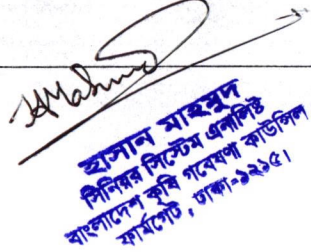 হাসান মাহমুদ
সিনিয়র সিস্টেম এনালিস্ট
বাংলাদেশ কৃষি গবেষণা কাউন্সিল
ফার্মগেট, ঢাকা-১২১৫।